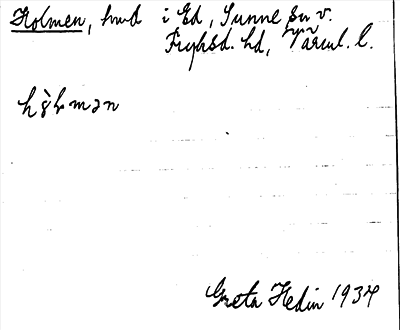 Holmen, hmd i Ed, Sunne sn v.
Fryksd. hd, Värml. l.
Greta Hedin 1934